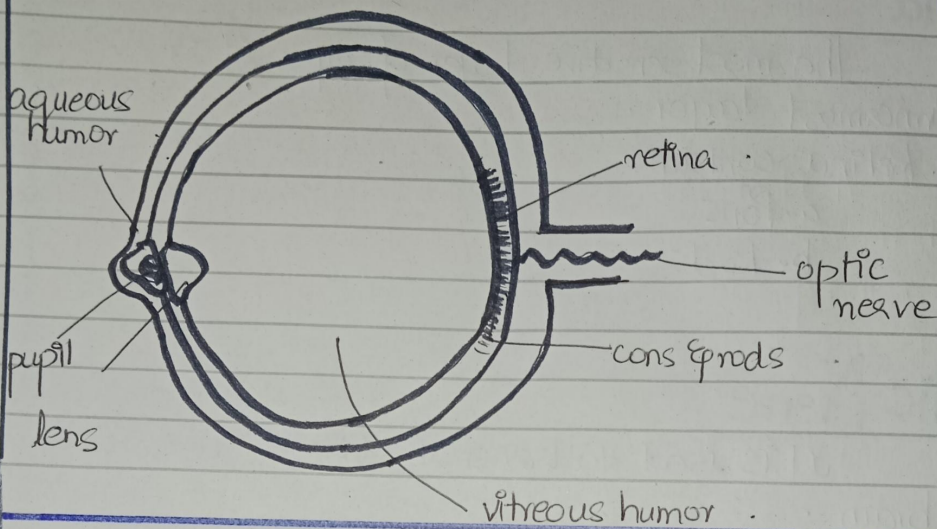 aqueous
humor
retina .
optic
nerve
pupil
cons &rods
lens
vitreous humor .